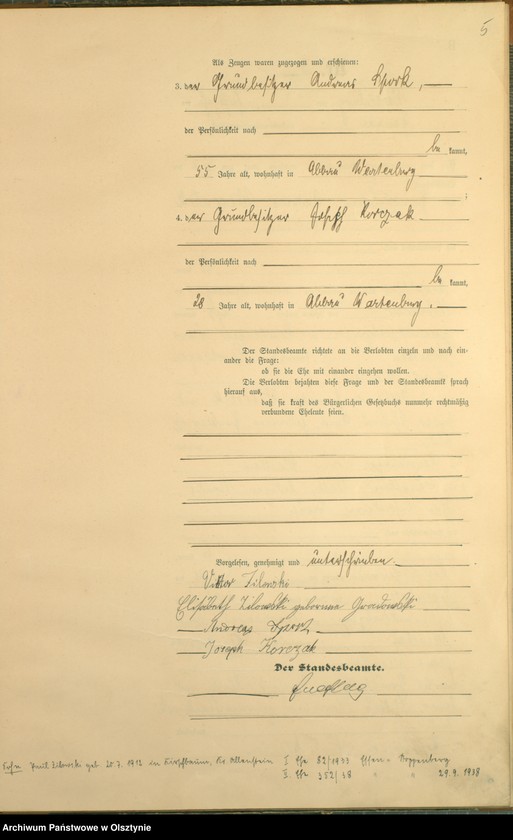 5
Als Zeugen waren zugezogen und erschienen:
3. der Grundbesitzer Andreas Spork,
der Persönlichkeit nach
be kannt,
55 Jahre alt, wohnhaft in Abbau Wartenburg
;
4. der Grundbesitzer Joseph Korczak
der Persönlichkeit nach
be kannt,
28 Jahre alt, wohnhaft in Abbau Wartenburg.
Der Standesbeamte richtete an die Verlobten einzeln und nach ein-
ander die Frage:
ob sie die Ehe mit einander eingehen wollen.
Die Verlobten bejahten diese Frage und der Standesbeamte sprach
hierauf aus,
daß sie kraft des Bürgerlichen Gesetzbuchs nunmehr rechtmäßig
verbundene Eheleute seien.
Vorgelesen, genehmigt und unterschrieben
Viktor Zilowski
Elisabeth Zilowski geborene Grodowski
Andreas Spork
Joseph Korczak
Der Standesbeamte.
Paul Zilowski geb. 20.7.1912 in Kirschbaum, Kr. Allenstein I Ehe 82/1933 Essen-
II. Ehe 552/38 29.9.1938
Archiwum Państwowe w Olsztynie